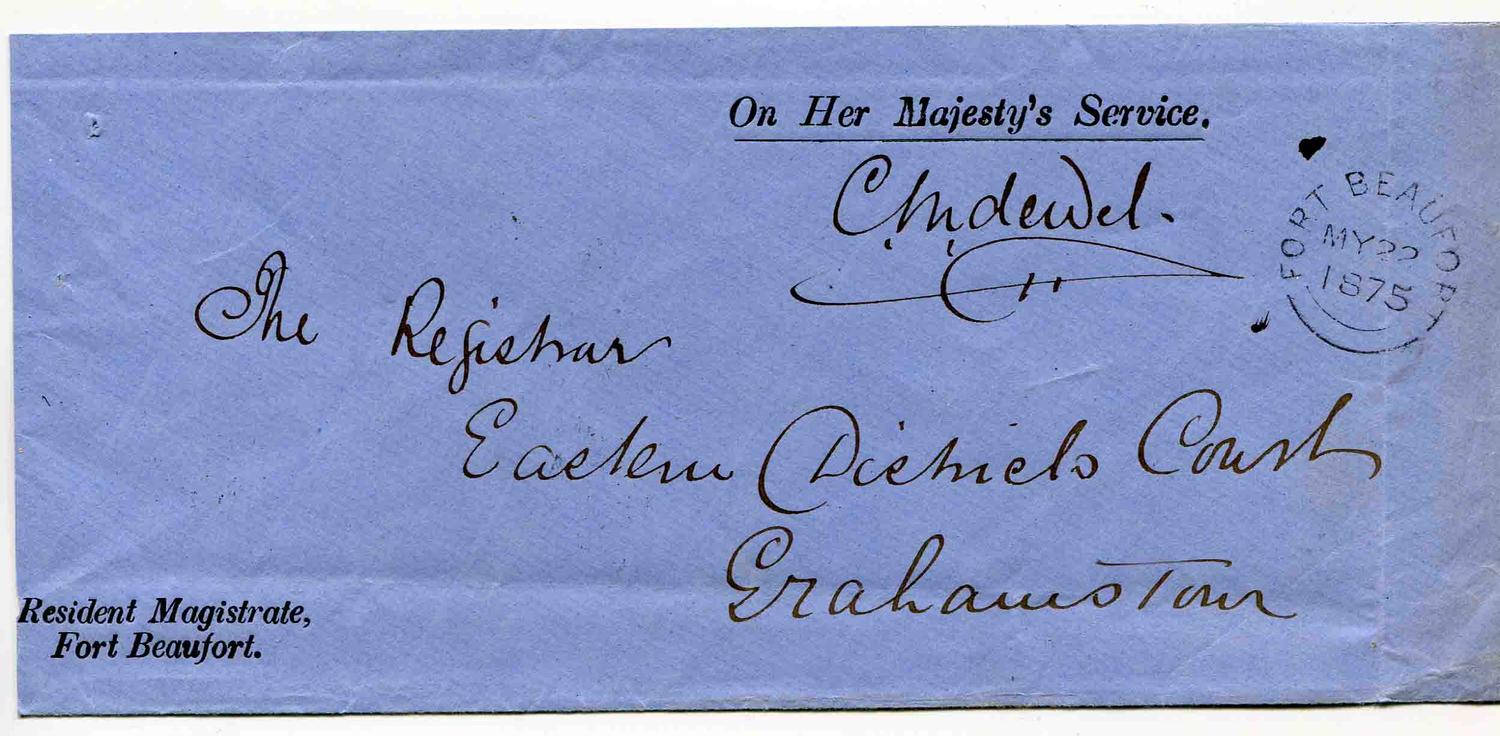 On Her Majesty's Service.
The Registrar
Eastern Districts Court
Grahamstown
Resident Magistrate,
Fort Beaufort.
FORT BEAUFORT
MY 22
1875